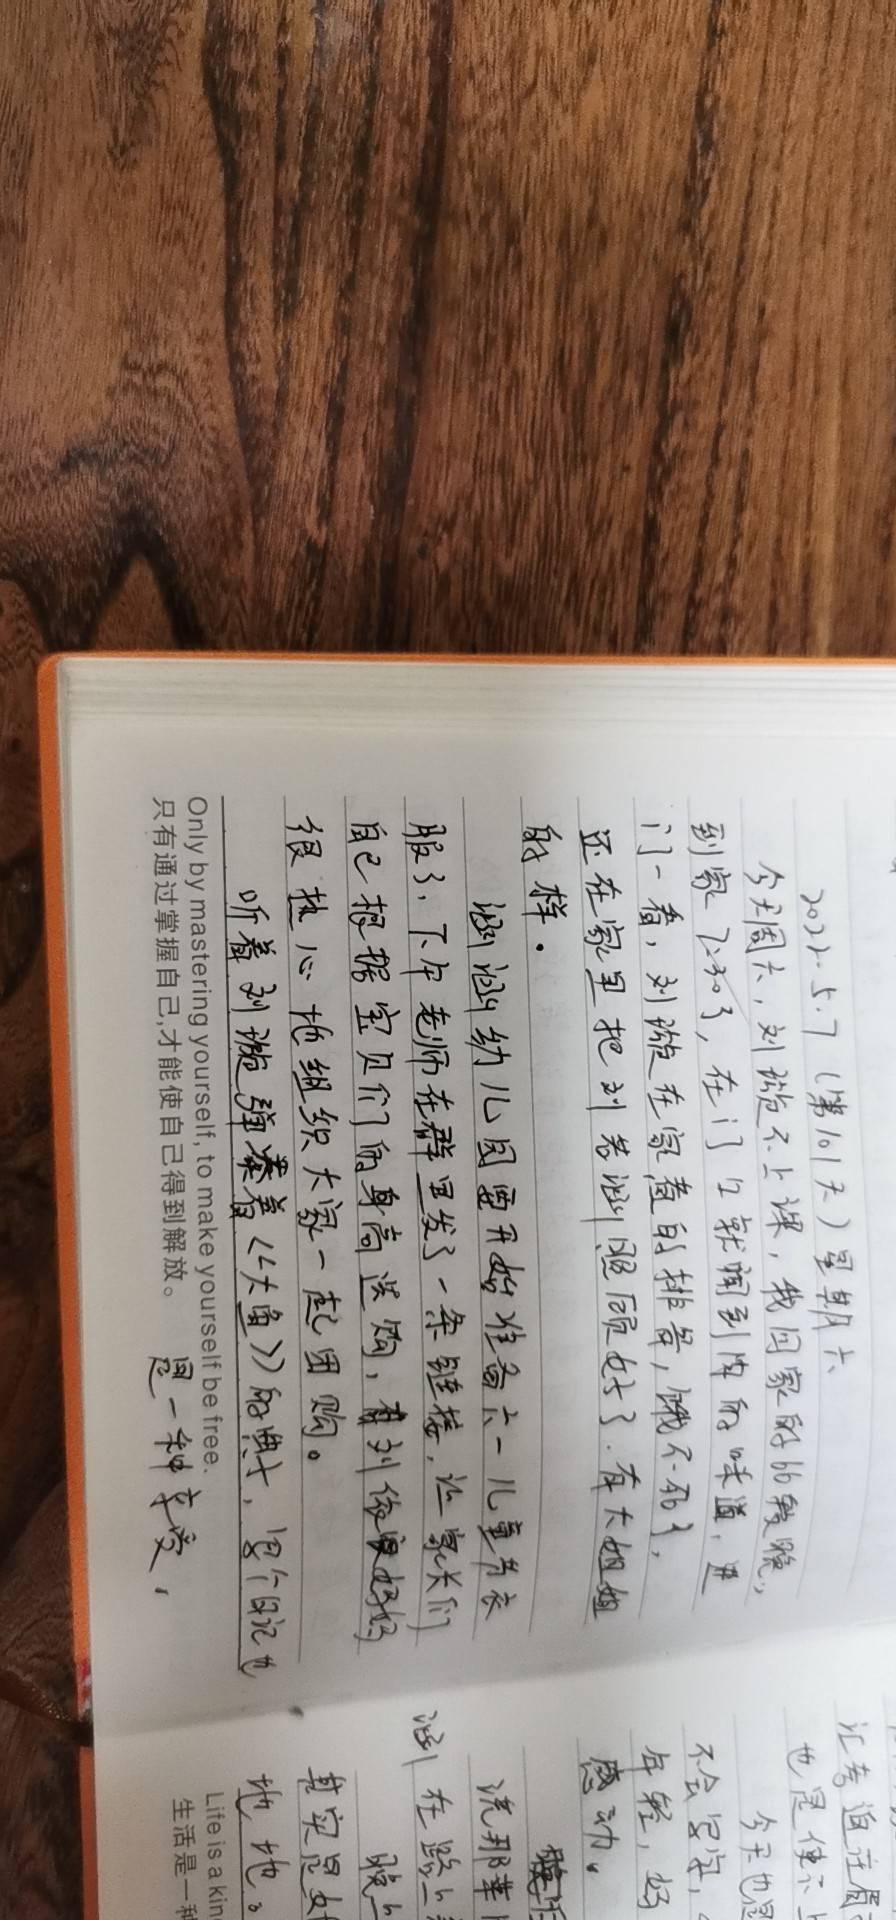 2022.5.7（第101天）星期六
今天周六，刘璇不上课，我回家的比较晚，
到家7:30了，在门口就闻到肉的味道，进
门一看，刘璇在家煮的排骨，饿不死了，
还在家里把刘若涵照顾好了.有大姐姐
的样.
涵涵幼儿园要开始准备六一儿童节衣
服了，下午老师在群里发了一条链接，让家长们
自己根据宝贝们的身高选购，有刘俊妈妈
很热心地组织大家一起团购。
听着刘璇弹奏着《大鱼》的曲子，写个日记也
是一种享受，
Only by mastering yourself, to make yourself be free.
只有通过掌握自己,才能使自己得到解放。
也是
今天也是
不会写字，
年轻，好
感动。
洗那
涵 在路上
晚上
其实是
地地。
Life is a kin
生活是一种